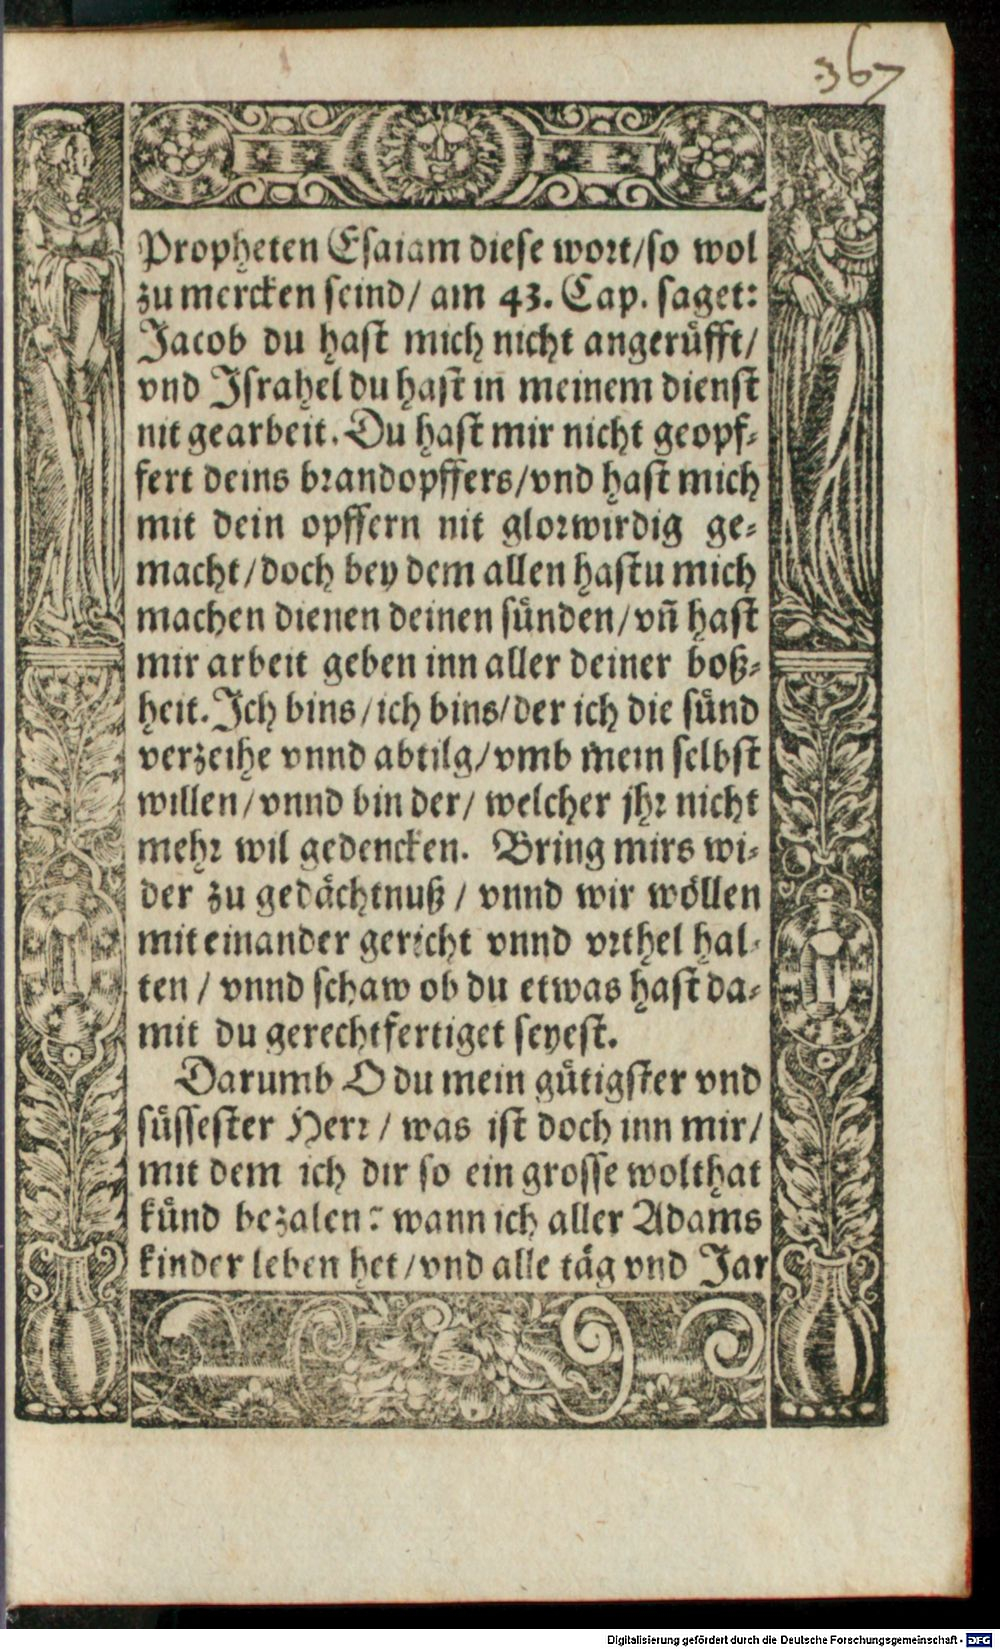 367
Propheten Esaiam diese wort/so wol
zu mercken seind/ am 43. Cap. saget:
Jacob du hast mich nicht angerüfft/
vnd Israhel du hast in meinem dienst
nit gearbeit. Du hast mir nicht geopf-
fert deins brandopffers/vnd hast mich
mit dein opffern nit glorwirdig ge-
macht/doch bey dem allen hastu mich
machen dienen deinen sünden/vñ hast
mir arbeit geben inn aller deiner boß-
heit. Ich bins/ich bins/der ich die sünd
verzeihe vnnd abtilg/vmb mein selbst
willen/vnnd bin der/ welcher jhr nicht
mehr wil gedencken. Bring mirs wi-
der zu gedächtnuß / vnnd wir wöllen
mit einander gericht vnnd vrthel hal-
ten / vnnd schaw ob du etwas hast da-
mit du gerechtfertiget seyest.
Darumb O du mein gütigster vnd
süssester Herr / was ist doch inn mir/
mit dem ich dir so ein grosse wolthat
künd bezalen: wann ich aller Adams
kinder leben het/vnd alle täg vnd Jar
Digitalisierung gefördert durch die Deutsche Forschungsgemeinschaft - DFG